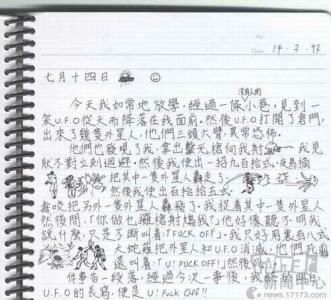 14・7・97
七月十四日
沒有人的
今天我如常地放學，經過一條小巷，見到一
U.F.O從天而降落在我面前。然後U.F.O打開了倉門，
出來了幾隻外星人，他們三頭六臂，異常恐怖。
他們也發現了我，拿出槍向我射 我見
狀不對立刻迴避。然後我使出一招九百拾式
把其中一隻外星人轟走了
然後我使出百拾拾五式
把另外一隻外星人轟飛了。我捉着其中一隻外星人
然後問：「你做也攞槍射鳩我?」他好像聽不明我
說什麼，只是不斷叫着「FUCK OFF」，我只好用裏百八式
大蛇薙把外星人和U.F.O消滅，他們
還叫着「U! FUCK OFF!」然後
件事告一段落，經過今次一事後，我終於明白
U.F.O的長寫，便是 U! FUCK OFF!!
新聞中心
news.17173.com